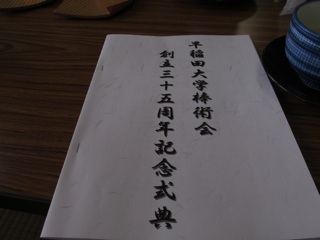 早稲田大学棒術会
創立三十五周年記念式典